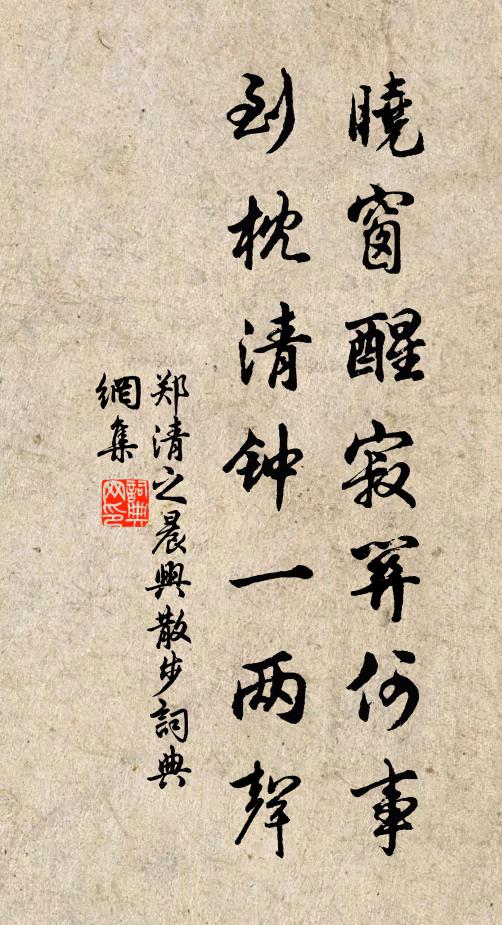 曉窗醒寂筭何事
到枕清钟一两聲
郑清之晨興散步詞典
網集
詞典
网印